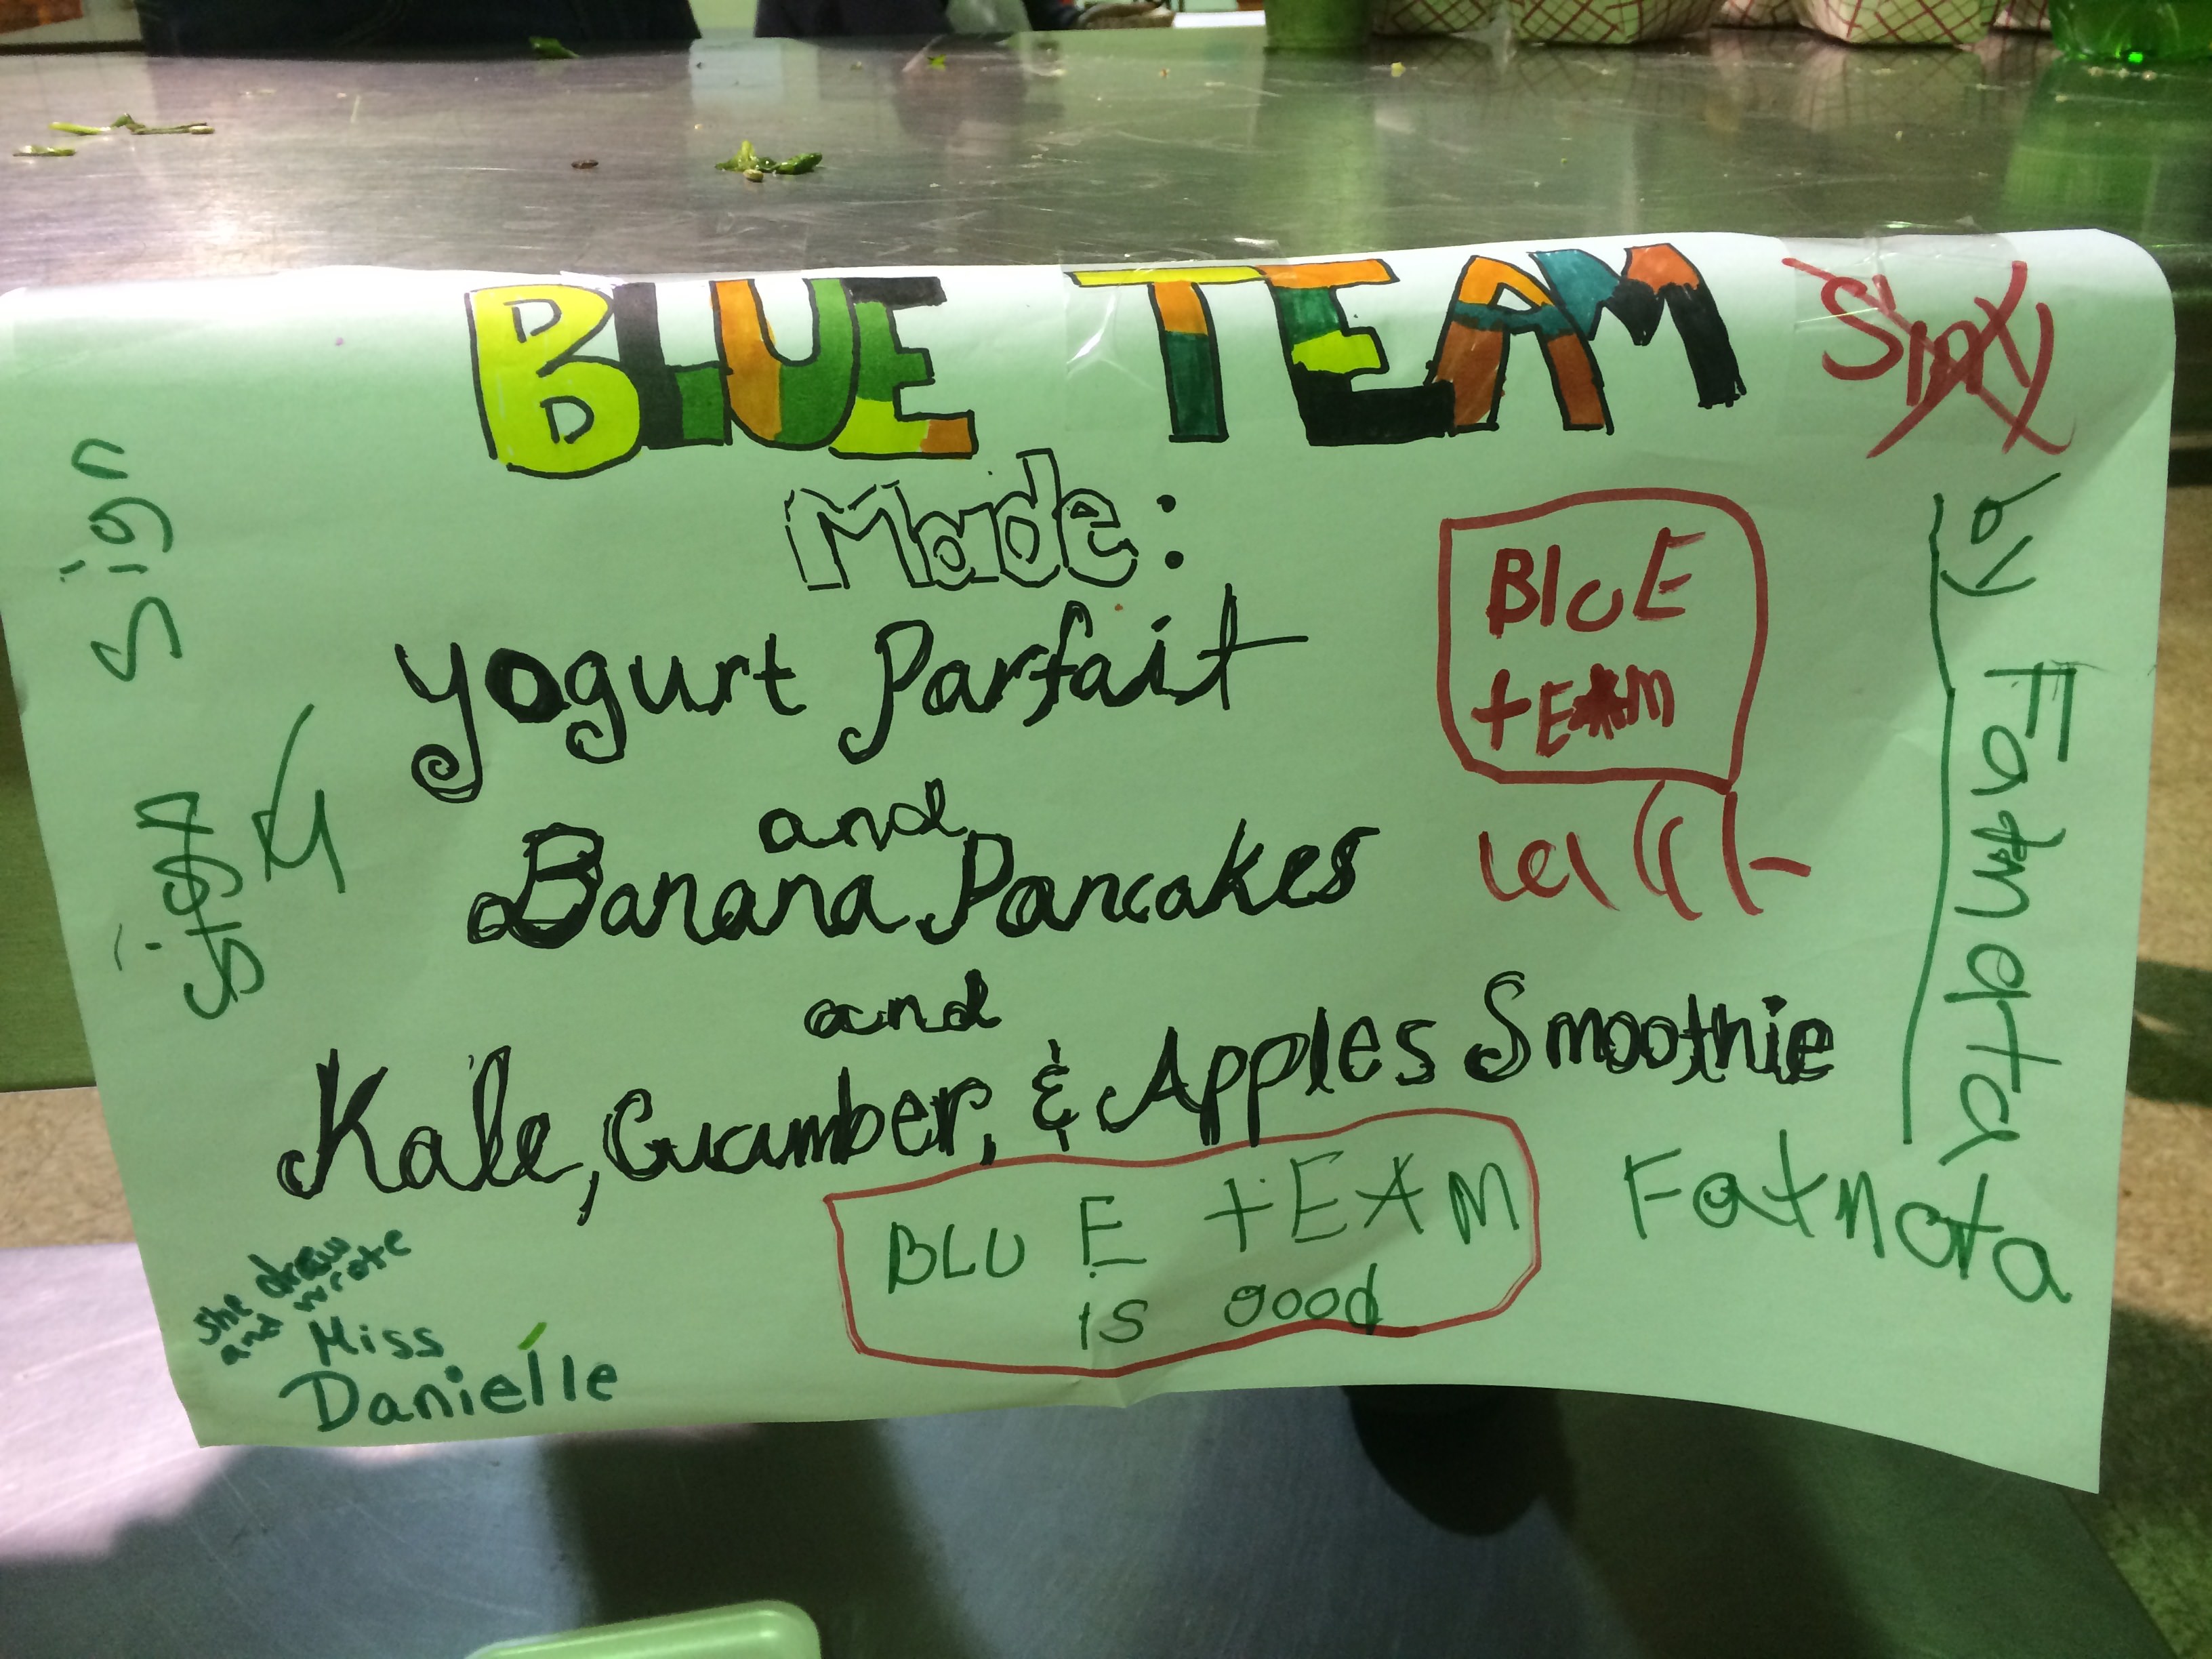 BLUE TEAM
Made:
Yogurt Parfait
and
Banana Pancakes
and
Kale, Cucumber, & Apples Smoothie
BlUE
tEAM
BLUE tEAM
is good
Fatmata
by Fatmata
Sign
sign
she draw
and wrote
Miss
Danielle